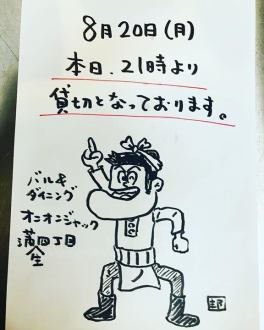 8月20日(月)
本日、21時より
貸切となっております。
バル&
ダイニング
オニオンジャック
蒲田四丁目